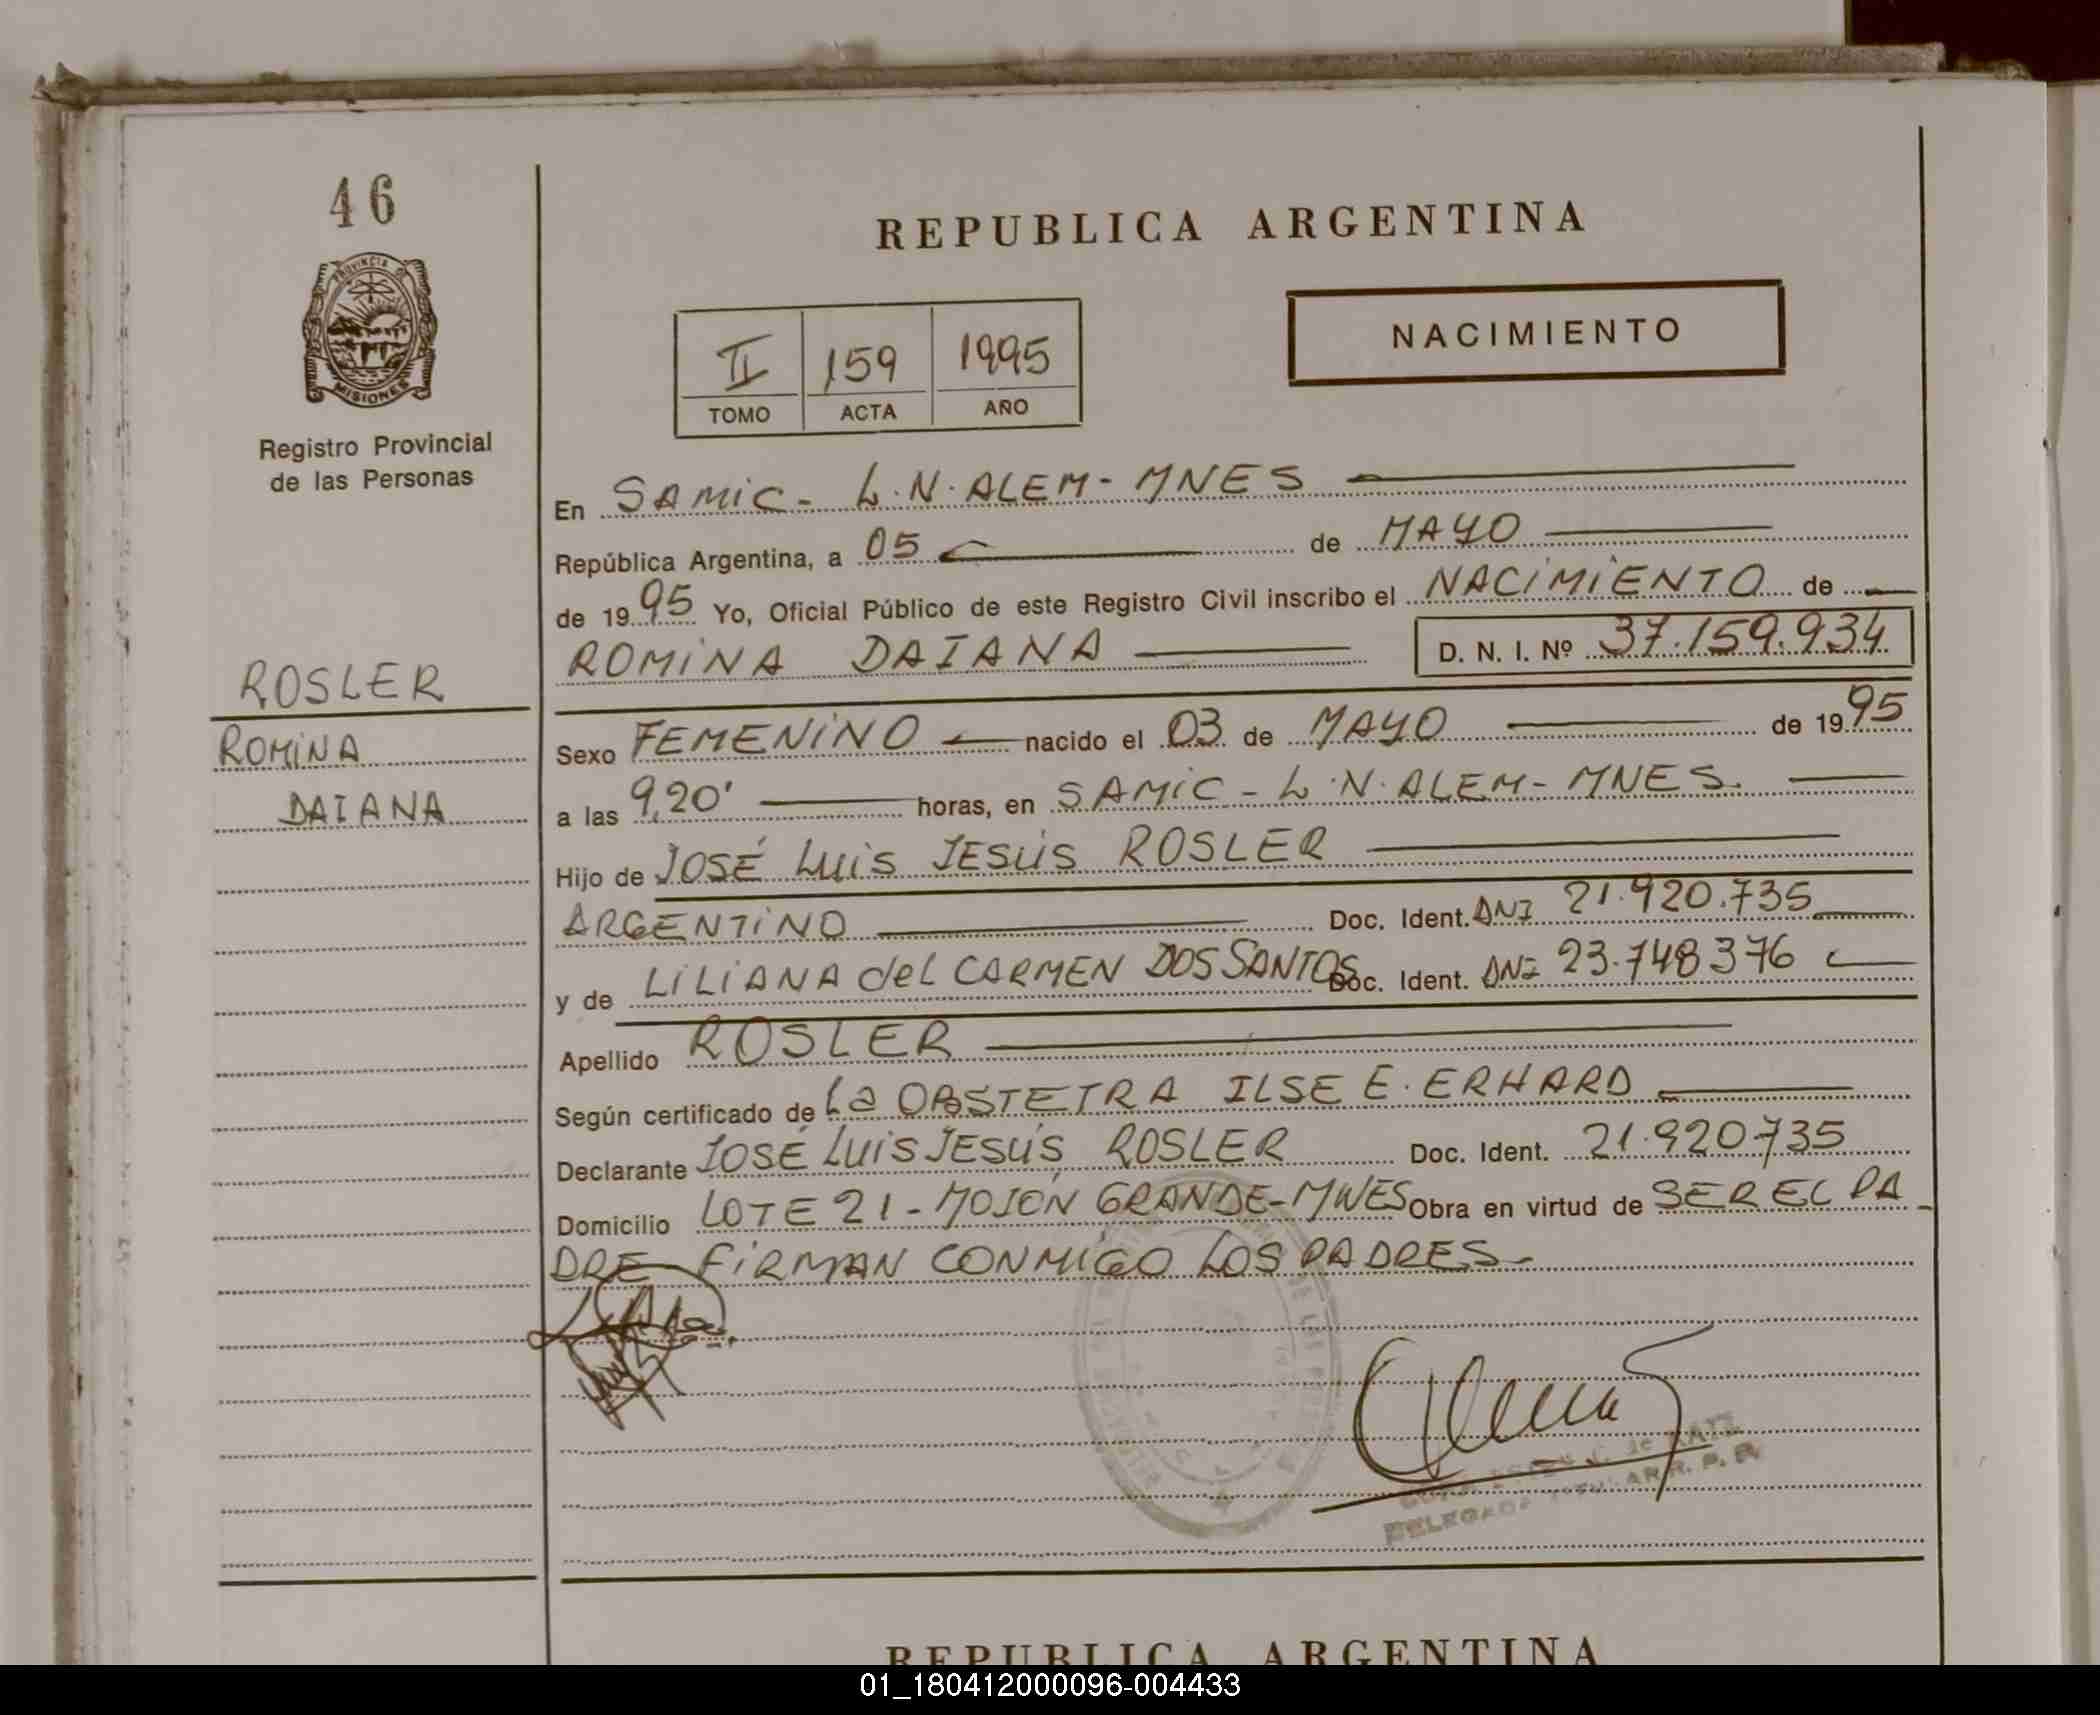 46
REPUBLICA ARGENTINA
PROVINCIA DE
MISIONES
Registro Provincial
de las Personas
II 159 1995
TOMO ACTA AÑO
NACIMIENTO
En SAMIC - L.N. ALEM - MNES
República Argentina, a 05 de MAYO
de 1995 Yo, Oficial Público de este Registro Civil inscribo el NACIMIENTO de
ROMINA DAIANA D. N. I. Nº 37.159.934
ROSLER
ROMINA
DAIANA
Sexo FEMENINO nacido el 03 de MAYO de 1995
a las 9,20' horas, en SAMIC - L.N. ALEM - MNES.
Hijo de JOSÉ LUIS JESÚS ROSLER
ARGENTINO Doc. Ident. DNI 21.920.735
y de LILIANA del CARMEN DOS SANTOS Doc. Ident. DNI 23.748376
Apellido ROSLER
Según certificado de La OBSTETRA ILSE E. ERHARD
Declarante JOSÉ LUIS JESÚS ROSLER Doc. Ident. 21.920735
Domicilio LOTE 21 - MOJÓN GRANDE - MNES Obra en virtud de SER EL PA-
DRE FIRMAN CONMIGO LOS PADRES-
DELEGADA TITULAR R. P. P.
REPUBLICA ARGENTINA
01_180412000096-004433